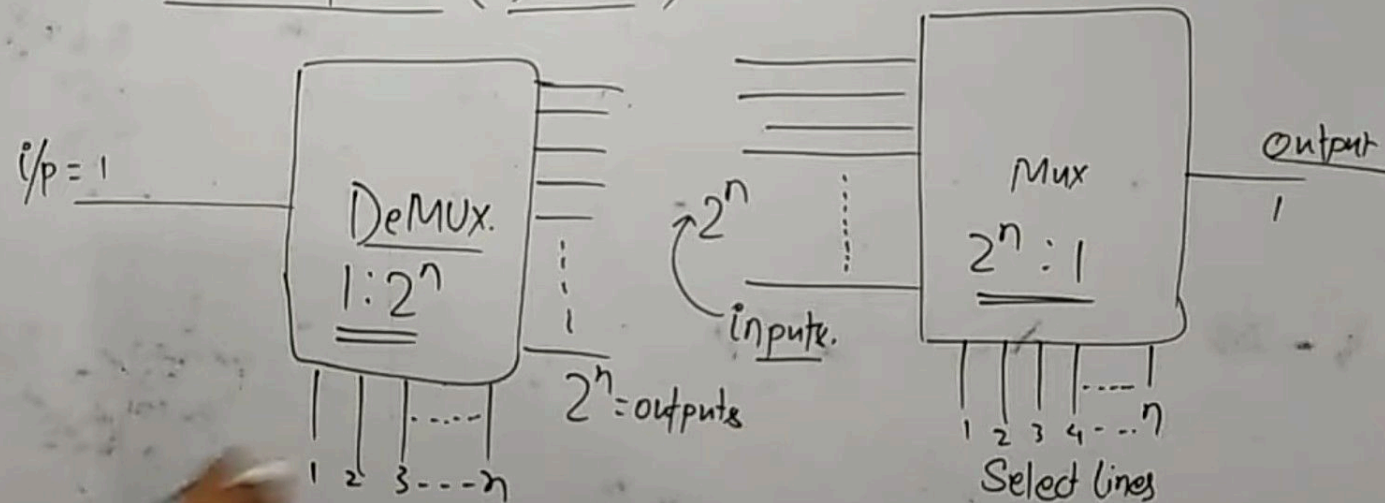 i/p = 1
DeMUX.
1:2ⁿ
1 2 3----n
2ⁿ=outputs
2ⁿ
inputs.
Mux
2ⁿ : 1
Output
1
1 2 3 4 -...n
Select lines